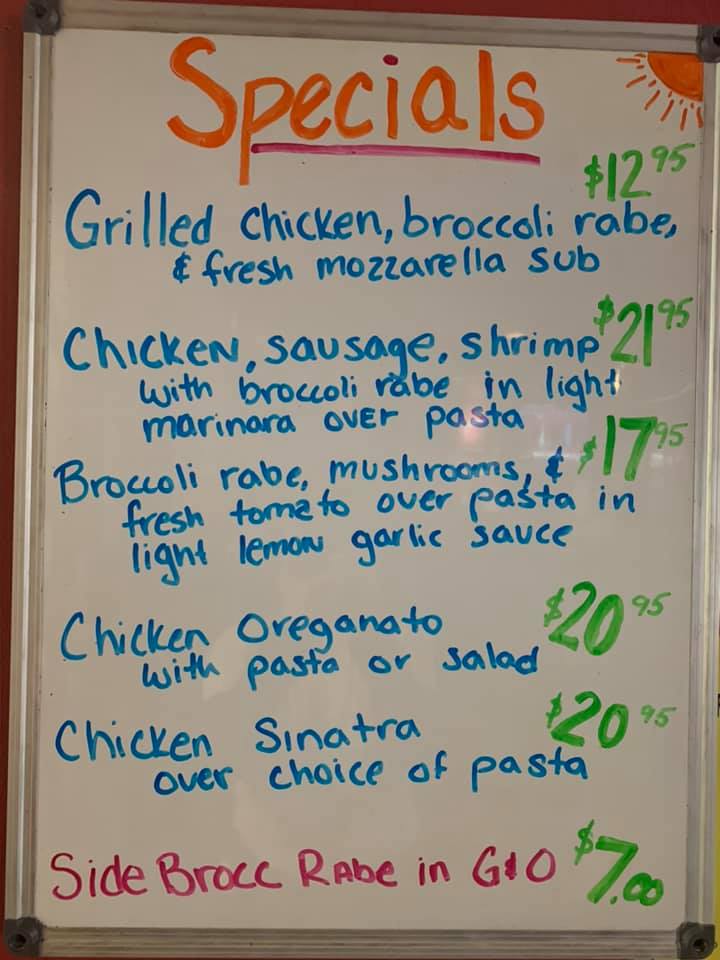 Specials
$12.95
Grilled Chicken, broccoli rabe,
& fresh mozzarella sub
Chicken, sausage, shrimp $21.95
with broccoli rabe in light
marinara over pasta
Broccoli rabe, mushrooms, & $17.95
fresh tomato over pasta in
light lemon garlic sauce
Chicken Oreganato $20.95
with pasta or salad
Chicken Sinatra $20.95
over choice of pasta
Side Brocc Rabe in G&O $7.00